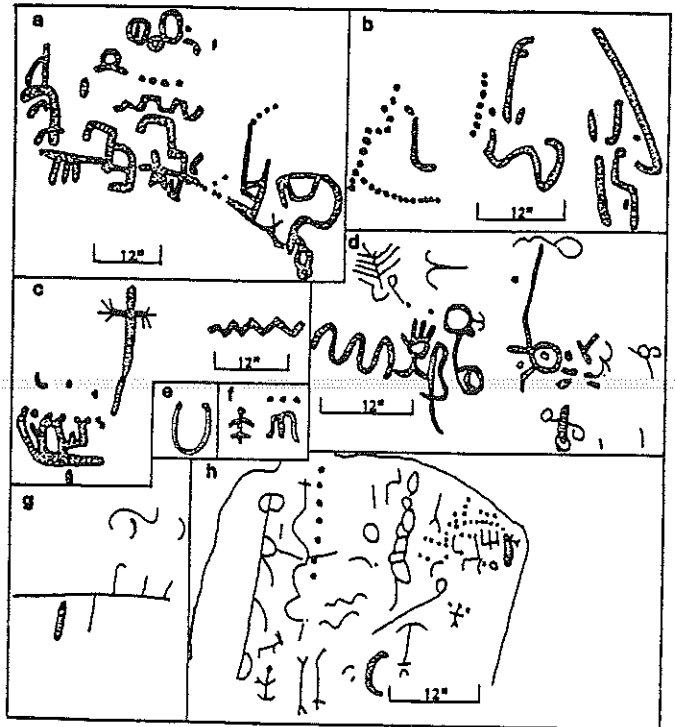 a
12"
b
12"
c
12"
d
12"
e
f
g
h
12"